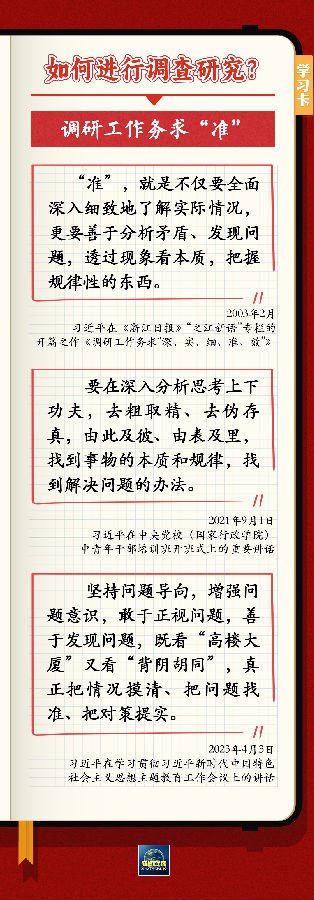 如何进行调查研究?
学习卡
调研工作务求“准”
“准”，就是不仅要全面
深入细致地了解实际情况，
更要善于分析矛盾、发现问
题，透过现象看本质，把握
规律性的东西。
2003年2月
习近平在《浙江日报》“之江新语”专栏的
开篇之作《调研工作务求“深、实、细、准、效”》
要在深入分析思考上下
功夫，去粗取精、去伪存
真，由此及彼、由表及里，
找到事物的本质和规律，找
到解决问题的办法。
2021年9月1日
习近平在中央党校（国家行政学院）
中青年干部培训班开班式上的重要讲话
坚持问题导向，增强问
题意识，敢于正视问题，善
于发现问题，既看“高楼大
厦”又看“背阴胡同”，真
正把情况摸清、把问题找
准、把对策提实。
2023年4月3日
习近平在学习贯彻习近平新时代中国特色
社会主义思想主题教育工作会议上的讲话